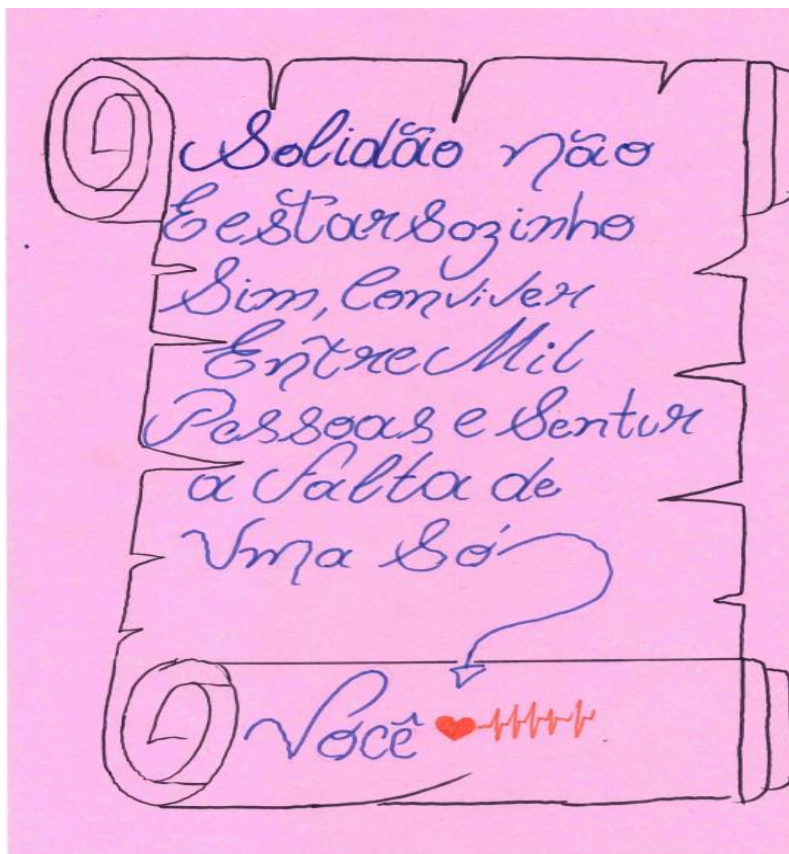 Solidão não
E estar sozinho
Sim, Conviver
Entre Mil
Pessoas e Sentir
a falta de
Uma Só
Você